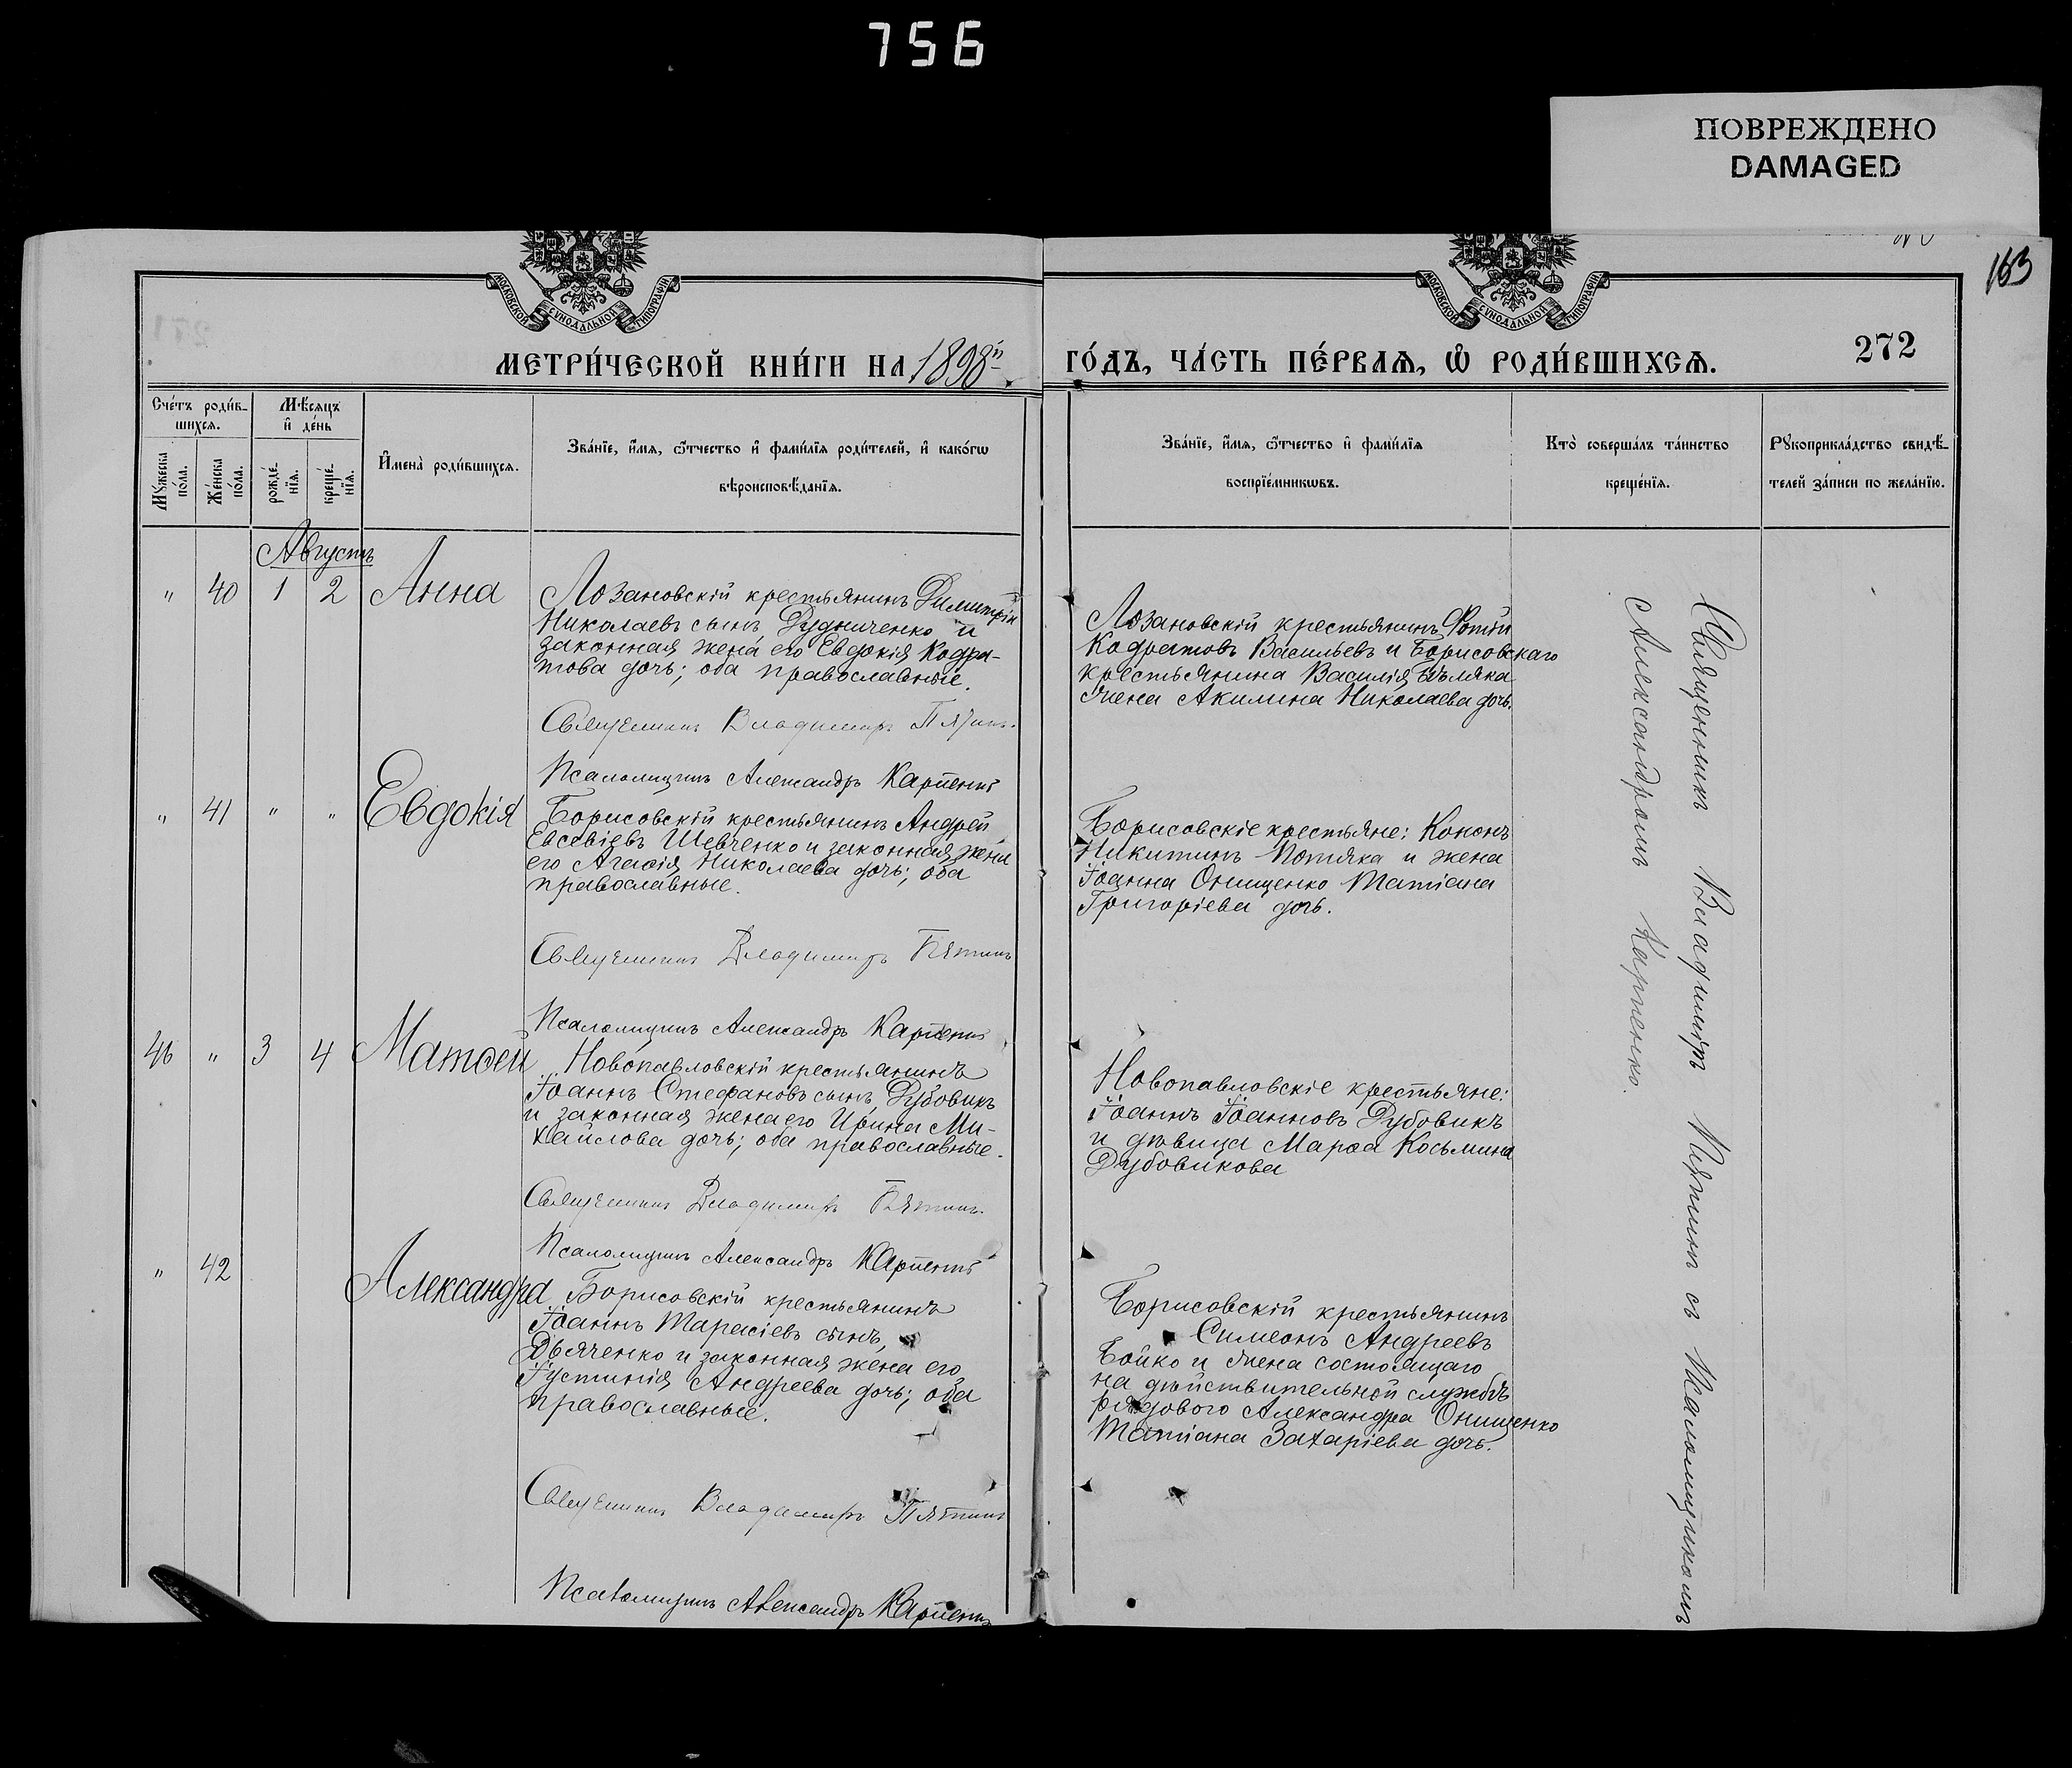 756
ПОВРЕЖДЕНО
DAMAGED
163
МОСКОВСКОЙ СѴНОДАЛЬНОЙ ТИПОГРАФІИ
МОСКОВСКОЙ СѴНОДАЛЬНОЙ ТИПОГРАФІИ
МЕТРИ́ЧЕСКОЙ КНИ́ГИ НА 1898й ГО́ДЪ, ЧА́СТЬ ПЕ́РВАѦ, Ѽ РОДИ́ВШИХСѦ.
272
Сче́тъ роди́в-
шихсѧ.
Мѣ́сѧцъ
и҆ де́нь
Мꙋ́жеска
по́ла.
Же́нска
по́ла.
рожде́-
нїѧ.
креще́-
нїѧ.
И҆мена̀ роди́вшихсѧ.
Зва́нїе, и҆́мѧ, ѻ҆́тчество и҆ фами́лїѧ роди́телей, и҆ како́гѡ
вѣроисповѣ́данїѧ.
Зва́нїе, и҆́мѧ, ѻ҆́тчество и҆ фами́лїѧ
воспрїе́мникѡвъ.
Кто̀ соверша́лъ та́инство
креще́нїѧ.
Рꙋкоприкла́дство свидѣ́-
телей за́писи по жела́нїю.
Августъ
" 40 1 2 Анна
Лозановскій крестьянинъ Димитрій
Николаевъ сынъ Дудниченко и
законная жена его Евдокія Кодра-
това дочь; оба православные.
Священникъ Владимиръ Пятинъ.
Псаломщикъ Александръ Карпенко
Лозановскій крестьянинъ Фотій
Кодратовъ Васильевъ и Борисовскаго
крестьянина Василія Бѣляка
жена Акилина Николаева дочь.
" 41 " " Евдокія
Борисовскій крестьянинъ Андрей
Евсевіевъ Шевченко и законная жена
его Агафія Николаева дочь; оба
православные.
Священникъ Владимиръ Пятинъ
Псаломщикъ Александръ Карпенко
Борисовскіе крестьяне: Кононъ
Никитинъ Потяка и жена
Іоанна Онищенко Татіана
Григоріева дочь.
46 " 3 4 Матѳей
Новопавловскій крестьянинъ
Іоаннъ Стефановъ сынъ Дубовикъ
и законная жена его Ирина Ми-
хайлова дочь; оба православные.
Священникъ Владимиръ Пятинъ.
Псаломщикъ Александръ Карпенко
Новопавловскіе крестьяне:
Іоаннъ Іоанновъ Дубовикъ
и дѣвица Марѳа Косьмина
Дубовикова
" 42 Александра
Борисовскій крестьянинъ
Іоаннъ Тарасіевъ сынъ
Дьяченко и законная жена его
Іустинія Андреева дочь; оба
православные.
Священникъ Владимиръ Пятинъ
Псаломщикъ Александръ Карпенко
Борисовскій крестьянинъ
Симеонъ Андреевъ
Бойко и жена состоящаго
на дѣйствительной службѣ
рядового Александра Онищенко
Татіана Захаріева дочь.
Священникъ Владимиръ Пятинъ съ Псаломщикомъ
Александромъ Карпенко.